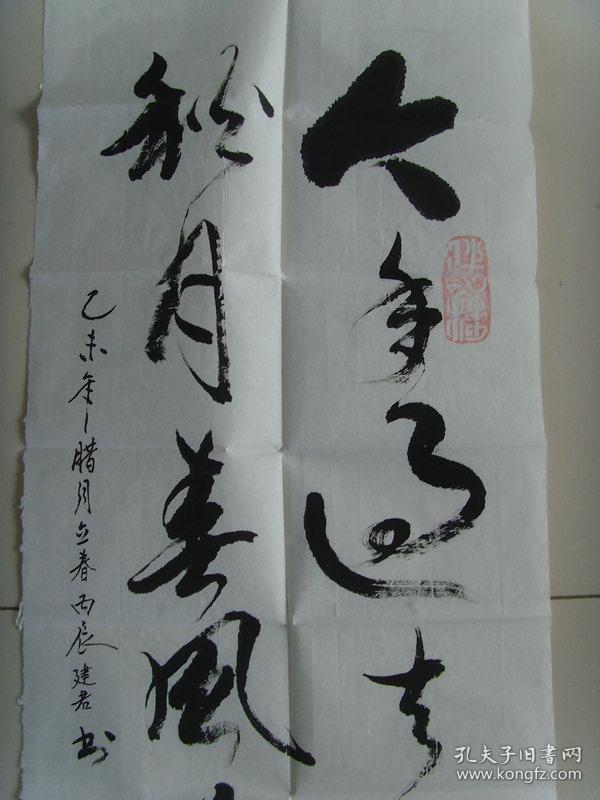 今年过去
秋月春風
乙未年腊月立春丙辰建君书
孔夫子旧书网
www.kongfz.com